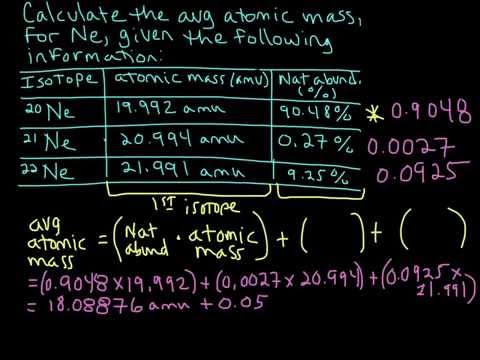 Calculate the avg atomic mass,
for Ne, given the following
information:
Isotope atomic mass (amu) Nat abund. (%)
20Ne 19.992 amu 90.48% * 0.9048
21Ne 20.994 amu 0.27% 0.0027
22Ne 21.991 amu 9.25% 0.0925
1ST isotope
avg atomic mass = (Nat abund · atomic mass) + ( ) + ( )
= (0.9048 x 19.992) + (0.0027 x 20.994) + (0.0925 x 21.991)
= 18.08876 amu + 0.05